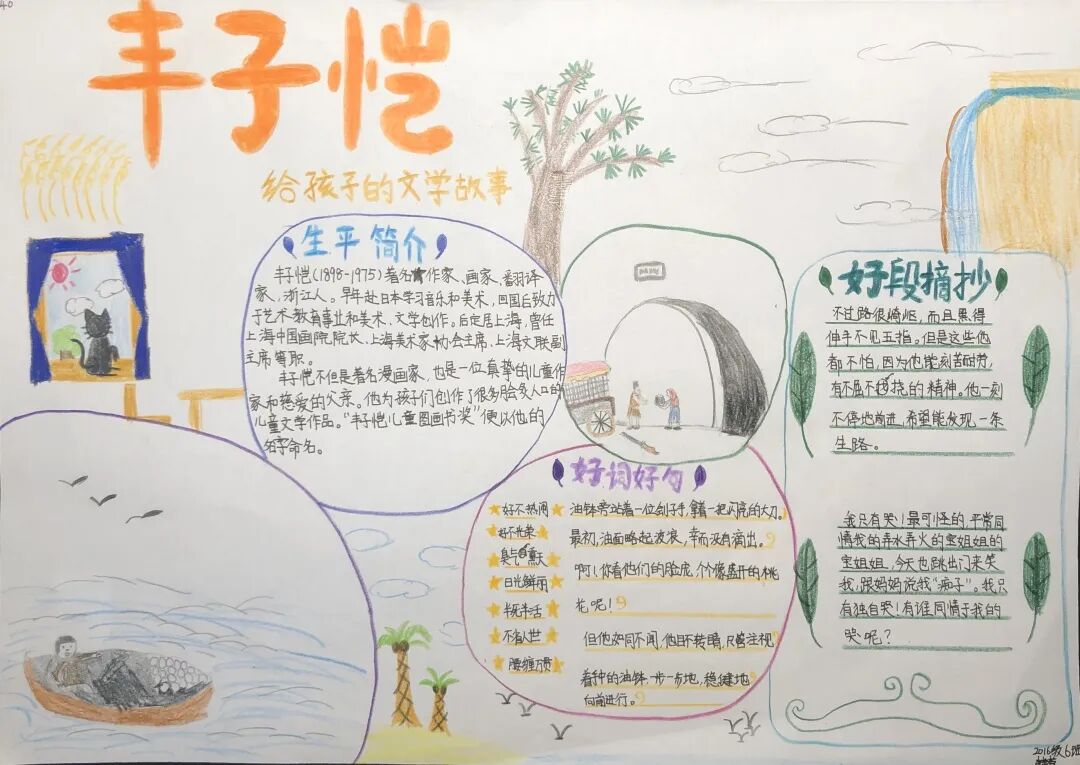 40
丰子恺
给孩子的文学故事
生平简介
丰子恺(1898-1975)著名作家、画家、翻译
家,浙江人。早年赴日本学习音乐和美术,回国后致力
于艺术教育事业和美术、文学创作。后定居上海,曾任
上海中国画院院长、上海美术家协会主席、上海文联副
主席等职。
丰子恺不但是著名漫画家,也是一位真挚的儿童作
家和慈爱的父亲。他为孩子们创作了很多脍炙人口的
儿童文学作品。“丰子恺儿童图画书奖”便以他的
名字命名。
好词好句
好不热闹
好不光荣
臭气熏天
日光鲜丽
半死半活
不省人世
腰缠万贯
油钵旁站着一位刽子手,拿着一把闪亮的大刀。
最初,油面略起波浪,幸而没有滴出。
啊!你看他们的脸庞,个个像盛开的桃
花呢!
但他如同不闻,他目不转睛,只管注视
着手中的油钵,一步一步地,稳健地
向前进行。
好段摘抄
不过路很崎岖,而且黑得
伸手不见五指。但是这些他
都不怕,因为他能刻苦耐劳,
有不屈不挠的精神。他一刻
不停地前进,希望能发现一条
生路。
我只有哭!最可怪的,平常同
情我的弄水弄火的宝姐姐的
宝姐姐,今天也跳出门来笑
我,跟妈妈说我“痴子”。我只
有独自哭!有谁同情于我的
哭呢?
2016级6班